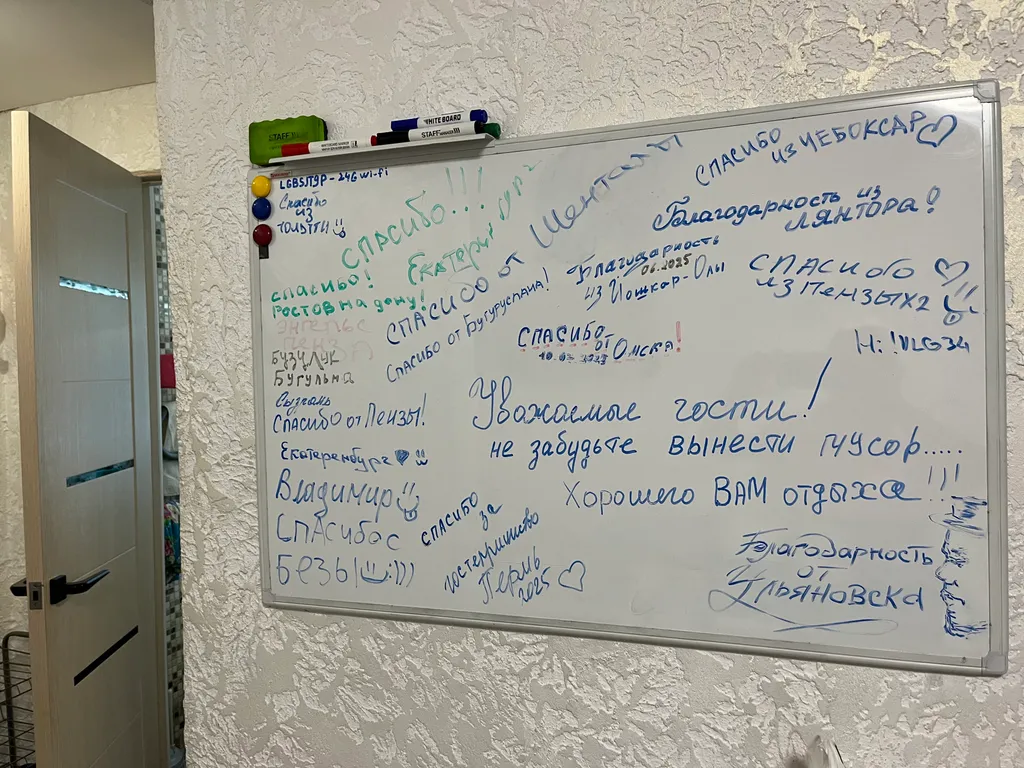 STAFF
WHITE BOARD
STAFF
LGBSJT9P - 24G wi-fi
Спасибо
из
ТОЛЬЯТТИ
СПАСИБО!!!
Екатеринбург
спасибо!
Ростов на дону!
ЭНГЕЛЬС
ПЕНЗ
БУЗУЛУК
БУГУЛЬМА
Сызрань
СПАСИБО от Пензы!
Екатеренбург
Владимир
СПАСИБОС
БЕЗЫ :)))
СПАСИБО ОТ Шенталы
Спасибо от Бугуруслана!
СПАСИБО
ИЗ ЧЕБОКСАР
Благодарность из
ЛЯНТОРА!
Благидарность
06.2025
из Йошкар-Олы
СПАСИБО
ИЗ ПЕНЗЫ
СПАСИБО
ОТ Омска!
Hi!VLG34
Уважаемые гости!
не забудьте вынести мусор.....
Хорошего ВАМ отдыха!!!
СПАСИБО
за
гостеприимство
Пермь
2025
Благодарность
ОТ
Ульяновска